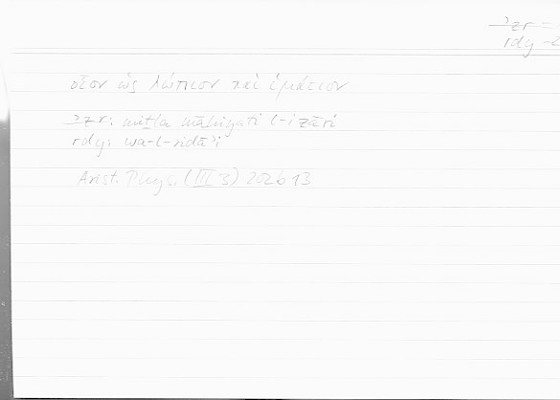 ʾzr –
rdy –
οἷον ὡς λώπιον καὶ ἱμάτιον
ʾzr: miṯla māhiyati l-izāri
rdy: wa-l-ridāʾi
Arist. Phys. (III 3) 202b13